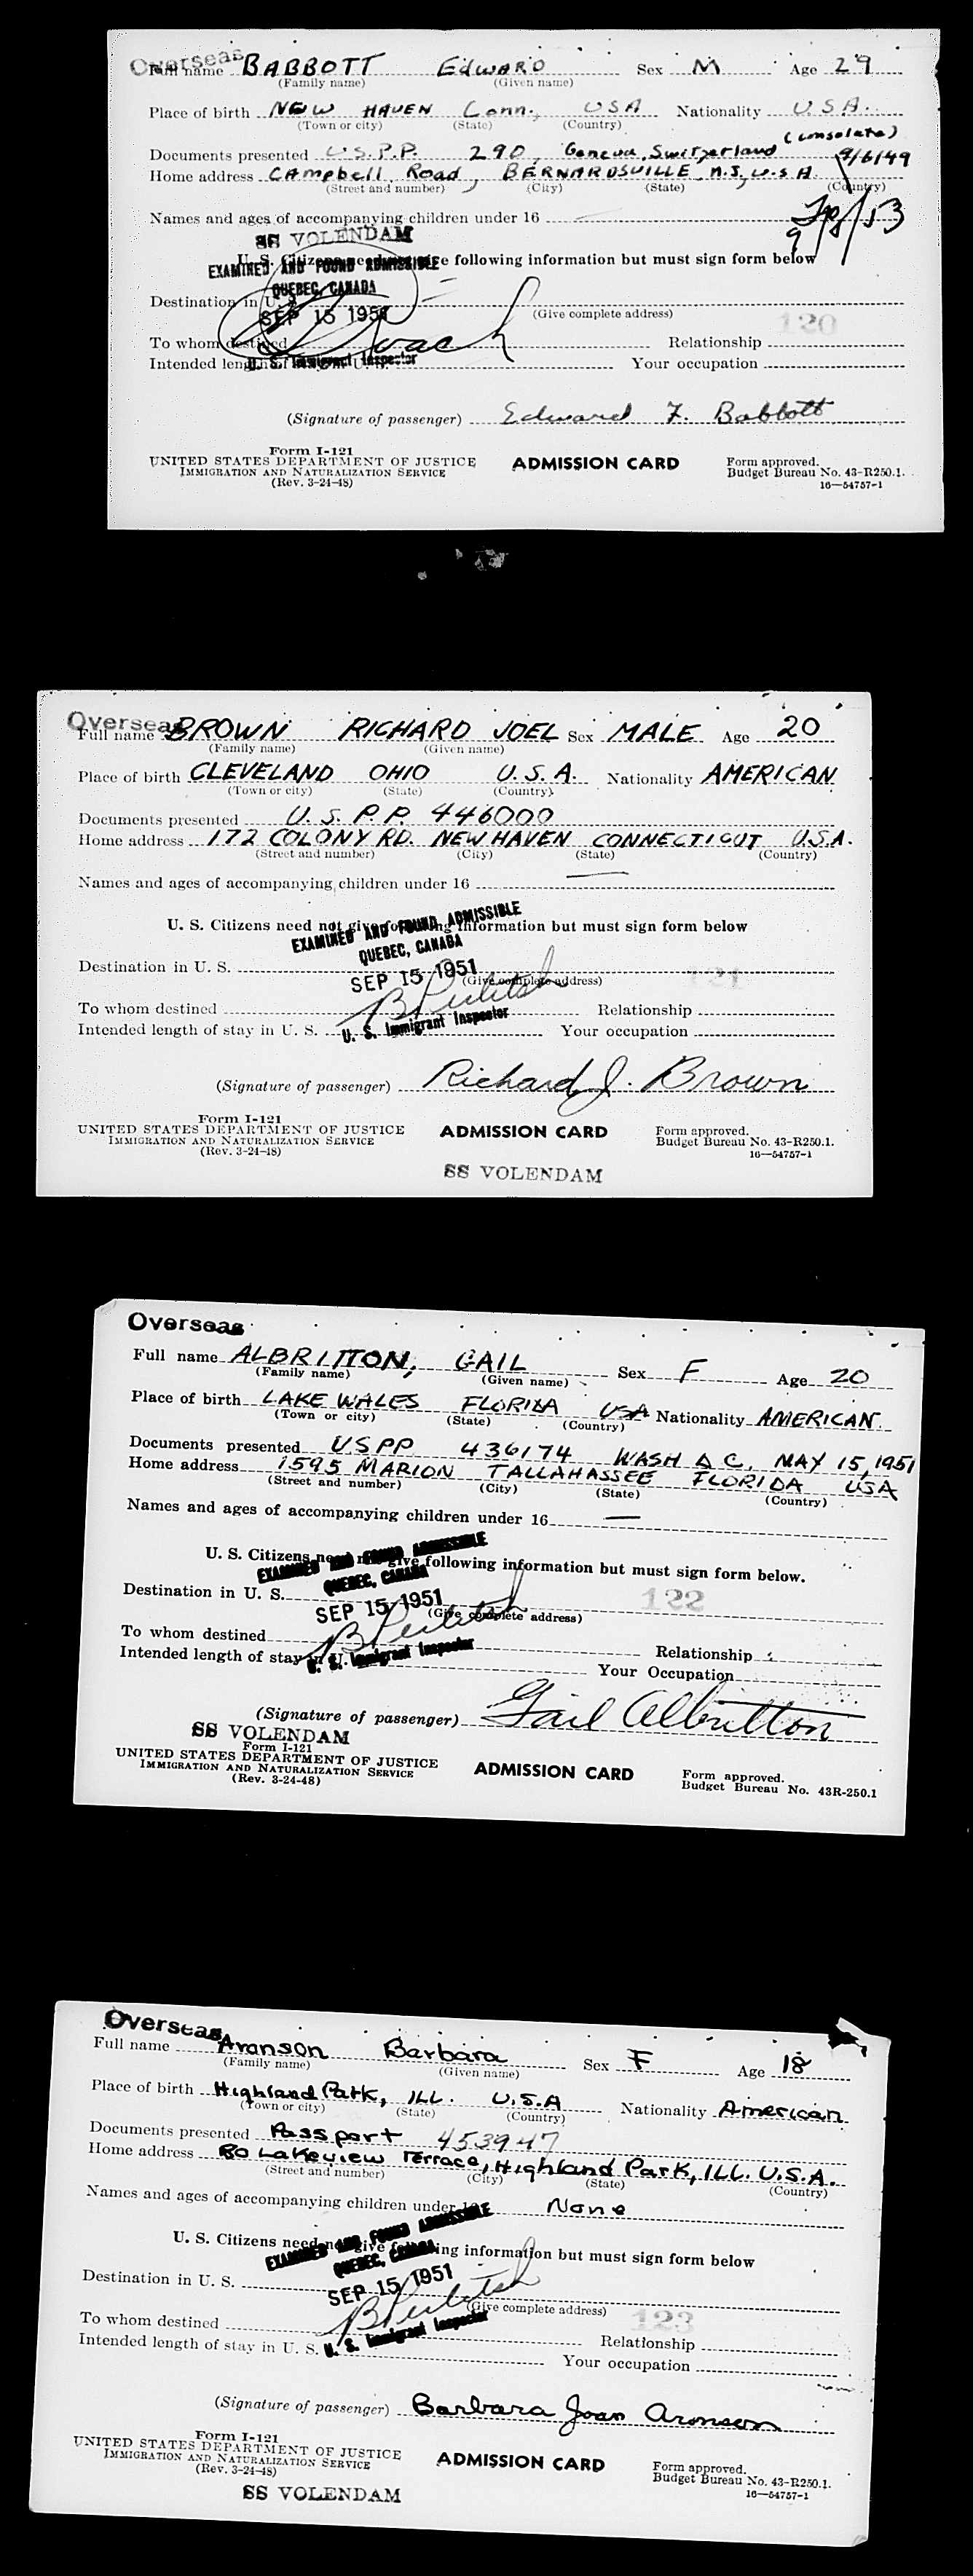 Overseas
Full name BABBOTT EDWARD Sex M Age 29
(Family name) (Given name)
Place of birth NEW HAVEN Conn., USA Nationality U.S.A.
(Town or city) (State) (Country)
(consolate)
Documents presented U.S.P.P. 290, Geneva, Switzerland 9/6/49
Home address CAmpbell Road, BERNARDSVILLE, N.J., U.S.A.
(Street and number) (City) (State) (Country)
Names and ages of accompanying children under 16
9/8/53
SS VOLENDAM
U. S. Citizens need not give following information but must sign form below
EXAMINED AND FOUND ADMISSIBLE
QUEBEC, CANADA
Destination in U. S.
SEP 15 1951
(Give complete address)
120
To whom destined Relationship
Intended length of stay in U. S. Your occupation
U. S. Immigrant Inspector
(Signature of passenger) Edward F. Babbott
Form I-121
UNITED STATES DEPARTMENT OF JUSTICE ADMISSION CARD Form approved.
IMMIGRATION AND NATURALIZATION SERVICE Budget Bureau No. 43-R250.1.
(Rev. 3-24-48) 16—54757-1
Overseas
Full name BROWN RICHARD JOEL Sex MALE Age 20
(Family name) (Given name)
Place of birth CLEVELAND OHIO U.S.A. Nationality AMERICAN
(Town or city) (State) (Country)
Documents presented U.S.P.P. 446000
Home address 172 COLONY RD. NEW HAVEN CONNECTICUT U.S.A.
(Street and number) (City) (State) (Country)
Names and ages of accompanying children under 16 —
U. S. Citizens need not give following information but must sign form below
EXAMINED AND FOUND ADMISSIBLE
QUEBEC, CANADA
Destination in U. S.
SEP 15 1951
(Give complete address)
121
To whom destined Relationship
Intended length of stay in U. S. Your occupation
U. S. Immigrant Inspector
(Signature of passenger) Richard J. Brown
Form I-121
UNITED STATES DEPARTMENT OF JUSTICE ADMISSION CARD Form approved.
IMMIGRATION AND NATURALIZATION SERVICE Budget Bureau No. 43-R250.1.
(Rev. 3-24-48) 16—54757-1
SS VOLENDAM
Overseas
Full name ALBRITTON, GAIL Sex F Age 20
(Family name) (Given name)
Place of birth LAKE WALES FLORIDA USA Nationality AMERICAN
(Town or city) (State) (Country)
Documents presented USPP 436174 WASH D C. MAY 15, 1951
Home address 1595 MARION TALLAHASSEE FLORIDA USA
(Street and number) (City) (State) (Country)
Names and ages of accompanying children under 16 —
U. S. Citizens need not give following information but must sign form below.
EXAMINED AND FOUND ADMISSIBLE
QUEBEC, CANADA
Destination in U. S.
SEP 15 1951
(Give complete address)
122
To whom destined Relationship
Intended length of stay in U. S. Your Occupation
U. S. Immigrant Inspector
(Signature of passenger) Gail Albritton
SS VOLENDAM
Form I-121
UNITED STATES DEPARTMENT OF JUSTICE ADMISSION CARD Form approved.
IMMIGRATION AND NATURALIZATION SERVICE Budget Bureau No. 43R-250.1
(Rev. 3-24-48)
Overseas
Full name Aronson Barbara Sex F Age 18
(Family name) (Given name)
Place of birth Highland Park, ILL. U.S.A Nationality American
(Town or city) (State) (Country)
Documents presented Passport 453947
Home address 80 Lakeview Terrace, Highland Park, ILL. U.S.A.
(Street and number) (City) (State) (Country)
Names and ages of accompanying children under 16 None
U. S. Citizens need not give following information but must sign form below
EXAMINED AND FOUND ADMISSIBLE
QUEBEC, CANADA
Destination in U. S.
SEP 15 1951
(Give complete address)
123
To whom destined Relationship
Intended length of stay in U. S. Your occupation
U. S. Immigrant Inspector
(Signature of passenger) Barbara Joan Aronson
Form I-121
UNITED STATES DEPARTMENT OF JUSTICE ADMISSION CARD Form approved.
IMMIGRATION AND NATURALIZATION SERVICE Budget Bureau No. 43-R250.1.
(Rev. 3-24-48) 16—54757-1
SS VOLENDAM